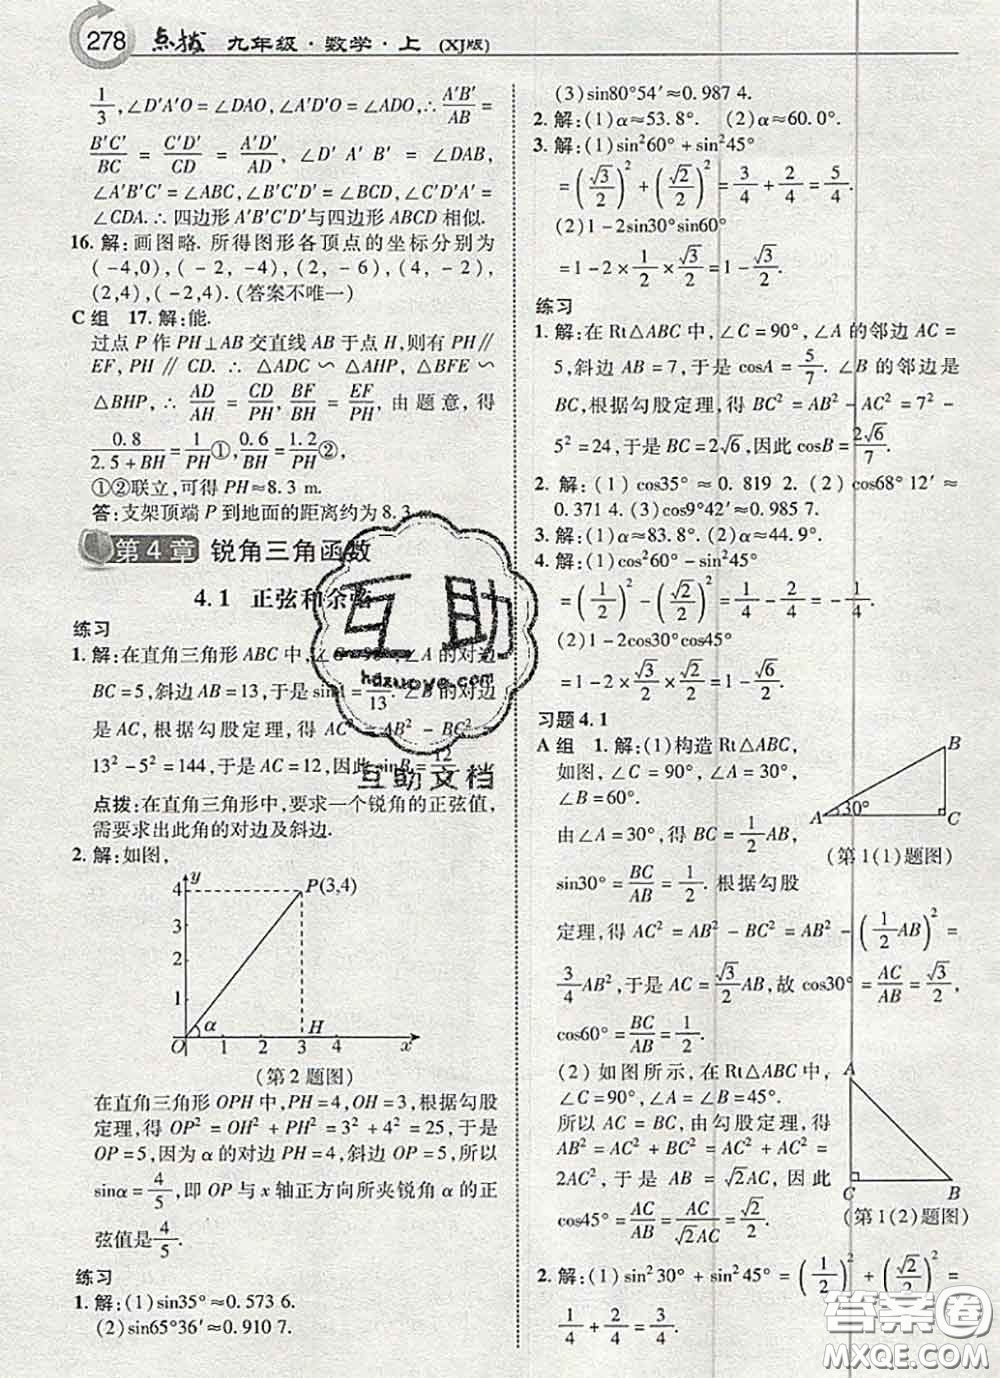 278 点拨 九年级·数学·上 (XJ版)
1/3, ∠D′A′O = ∠DAO, ∠A′D′O = ∠ADO, ∴ A′B′/AB =
B′C′/BC = C′D′/CD = A′D′/AD, ∠D′A′B′ = ∠DAB,
∠A′B′C′ = ∠ABC, ∠B′C′D′ = ∠BCD, ∠C′D′A′ =
∠CDA. ∴ 四边形 A′B′C′D′与四边形 ABCD 相似.
16. 解: 画图略. 所得图形各顶点的坐标分别为
(-4,0), (-2, -4), (2, -6), (4, -2),
(2,4), (-2,4). (答案不唯一)
C 组 17. 解: 能.
过点 P 作 PH⊥AB 交直线 AB 于点 H, 则有 PH∥
EF, PH∥CD. ∴ △ADC ∽ △AHP, △BFE ∽
△BHP, ∴ AD/AH = CD/PH, BF/BH = EF/PH, 由题意, 得
0.8/(2.5+BH) = 1/PH①, 0.6/BH = 1.2/PH②,
①②联立, 可得 PH≈8.3 m.
答: 支架顶端 P 到地面的距离约为 8.3 m.
第 4 章 锐角三角函数
4.1 正弦和余弦
练习
1. 解: 在直角三角形 ABC 中, ∠C = 90°, ∠A 的对边
BC = 5, 斜边 AB = 13, 于是 sinA = 5/13. ∠B 的对边
是 AC, 根据勾股定理, 得 AC² = AB² - BC² =
13² - 5² = 144, 于是 AC = 12, 因此 sinB = 12/13.
点拨: 在直角三角形中, 要求一个锐角的正弦值,
需要求出此角的对边及斜边.
2. 解: 如图,
y
4
3
2
1
P(3,4)
α
H
O 1 2 3 4 x
(第 2 题图)
在直角三角形 OPH 中, PH = 4, OH = 3, 根据勾股
定理, 得 OP² = OH² + PH² = 3² + 4² = 25, 于是
OP = 5, 因为 α 的对边 PH = 4, 斜边 OP = 5, 所以
sinα = 4/5, 即 OP 与 x 轴正方向所夹锐角 α 的正
弦值是 4/5.
练习
1. 解: (1) sin35° ≈ 0.573 6.
(2) sin65°36′ ≈ 0.910 7.
(3) sin80°54′ ≈ 0.987 4.
2. 解: (1) α≈53.8°. (2) α≈60.0°.
3. 解: (1) sin²60° + sin²45°
= (√3/2)² + (√2/2)² = 3/4 + 2/4 = 5/4.
(2) 1 - 2sin30°sin60°
= 1 - 2 × 1/2 × √3/2 = 1 - √3/2.
练习
1. 解: 在 Rt△ABC 中, ∠C = 90°, ∠A 的邻边 AC =
5, 斜边 AB = 7, 于是 cosA = 5/7. ∠B 的邻边是
BC, 根据勾股定理, 得 BC² = AB² - AC² = 7² -
5² = 24, 于是 BC = 2√6, 因此 cosB = 2√6/7.
2. 解: (1) cos35° ≈ 0.819 2. (2) cos68°12′ ≈
0.371 4. (3) cos9°42′ ≈ 0.985 7.
3. 解: (1) α≈83.8°. (2) α≈44.9°.
4. 解: (1) cos²60° - sin²45°
= (1/2)² - (√2/2)² = 1/4 - 2/4 = -1/4.
(2) 1 - 2cos30°cos45°
= 1 - 2 × √3/2 × √2/2 = 1 - √6/2.
习题 4.1
A 组 1. 解: (1) 构造 Rt△ABC,
如图, ∠C = 90°, ∠A = 30°,
∠B = 60°.
B
A 30° C
(第 1(1) 题图)
由∠A = 30°, 得 BC = 1/2 AB,
sin30° = BC/AB = 1/2. 根据勾股
定理, 得 AC² = AB² - BC² = AB² - (1/2 AB)² =
3/4 AB², 于是 AC = √3/2 AB, 故 cos30° = AC/AB = √3/2,
cos60° = BC/AB = 1/2.
(2) 如图所示, 在 Rt△ABC 中,
∠C = 90°, ∠A = ∠B = 45°.
所以 AC = BC, 由勾股定理, 得
AB² = AC² + BC² = AC² + AC² =
2AC², 于是 AB = √2AC, 故
cos45° = AC/AB = AC/√2AC = √2/2.
A
C B
(第 1(2) 题图)
2. 解: (1) sin²30° + sin²45° = (1/2)² + (√2/2)² =
1/4 + 2/4 = 3/4.
互助
hdzuoye.com
互助文档
答案圈
MXQE.COM